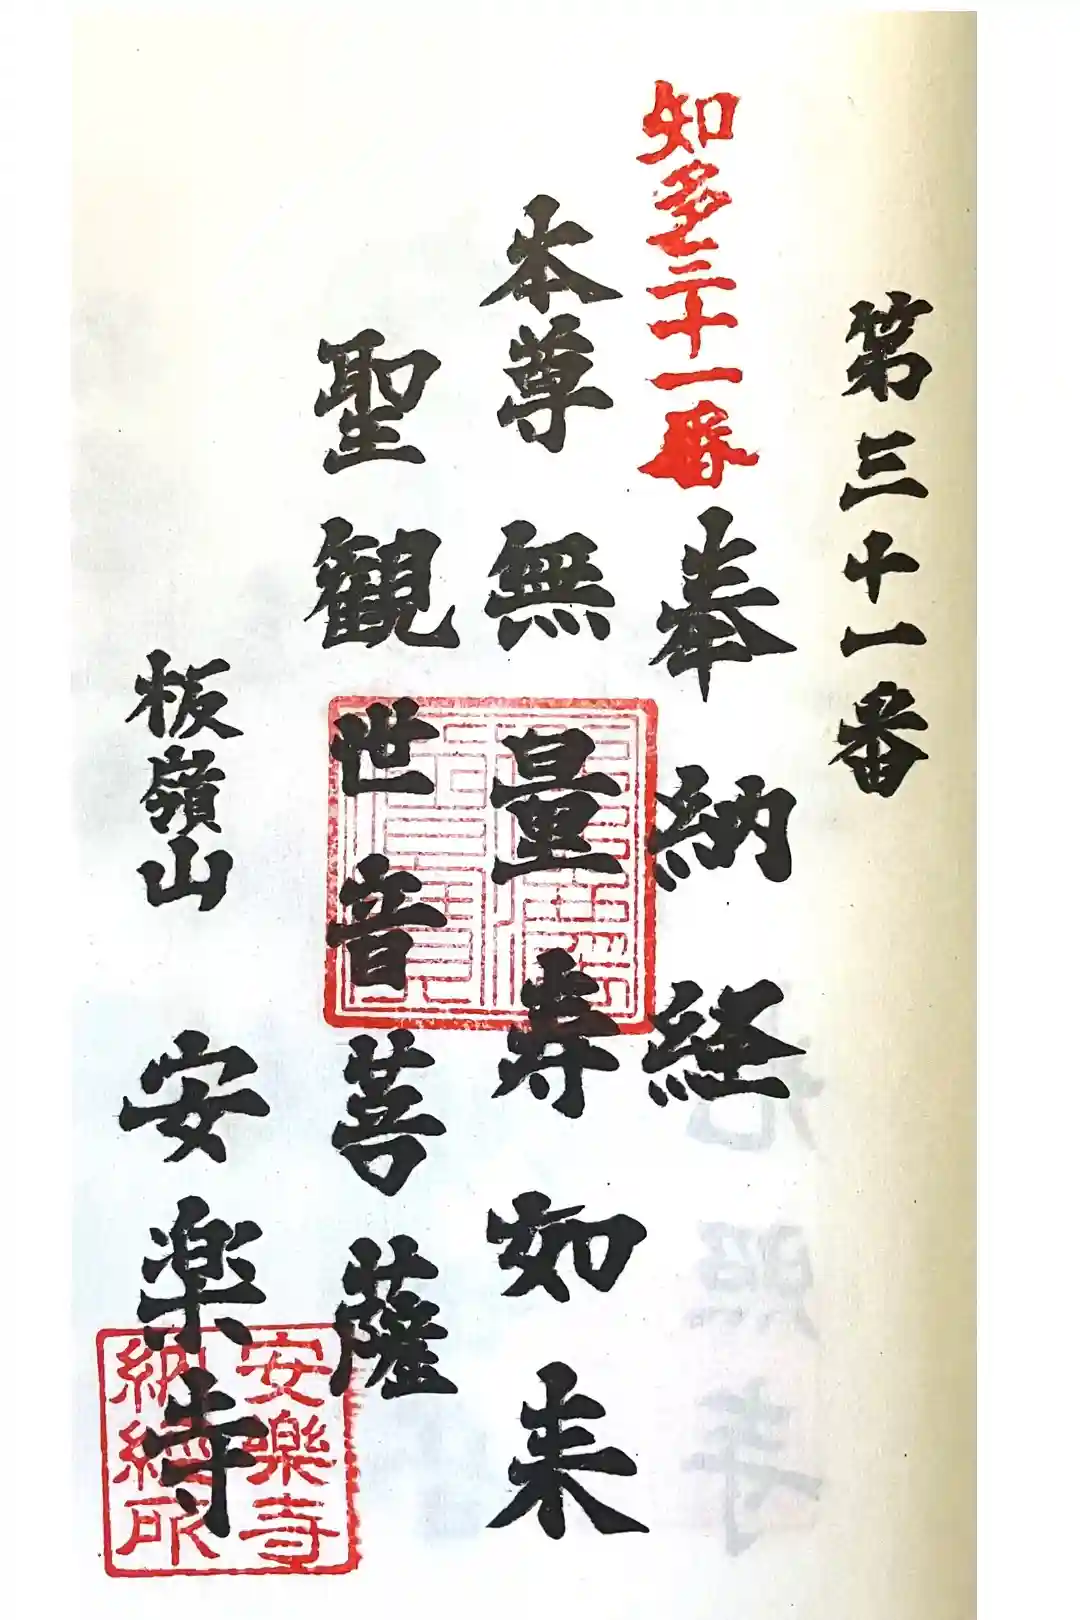 第三十一番
知多三十一番
奉納経
本尊無量寿如来
聖観世音菩薩
板嶺山
安楽寺
安樂寺
納經所